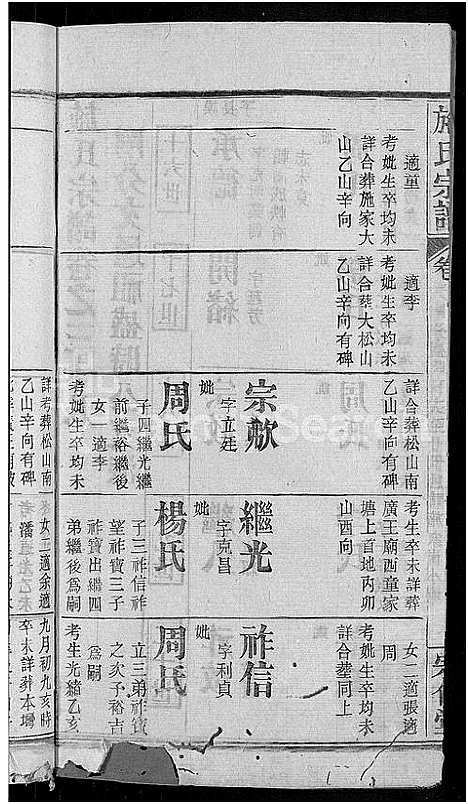 施氏宗譜
卷
適董
考妣生卒均未
詳合葬施家大
山乙山辛向
適李
考妣生卒均未
詳合葬大松山
乙山辛向有碑
詳合葬松山南
乙山辛向有碑
宗歟
字立廷
妣
周氏
子四繼光繼
前繼裕繼後
女一適李
考妣生卒均未
詳考葬松山南
乙山辛向有碑
考生卒未詳葬
廣王廟西童家
塘上首地丙卯
山酉向
繼光
字克昌
妣
楊氏
子三祚信祚
望祚寶三子
祚寶出繼四
弟繼後爲嗣
女二適余適
潘
女二適張適
周
考妣生卒均未
詳合葬同上
祚信
字利貞
妣
周氏
立三弟祚寶
之次子裕吉
爲嗣
考生光緒乙亥
九月初九亥時
卒未詳葬本塆